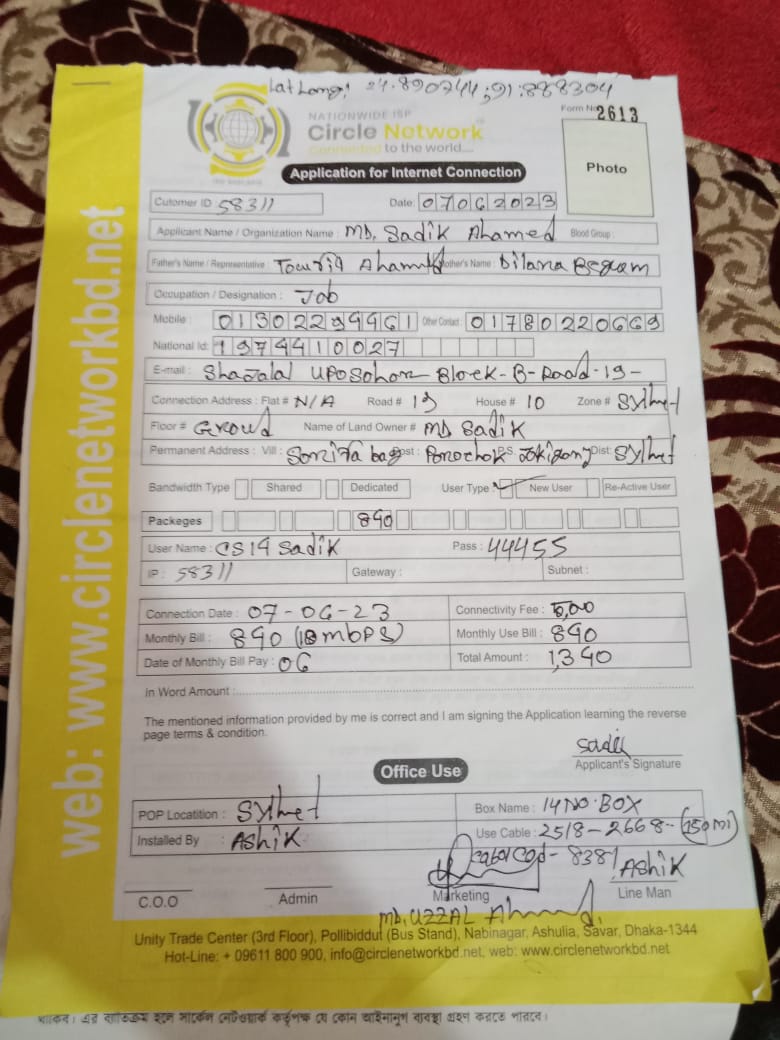 Lat Long: 24.890744, 91.888304
Form No 2613
NATIONWIDE ISP
Circle Network
Connected to the world....
Photo
Application for Internet Connection
Cutomer ID 58311 Date: 07062023
Applicant Name / Organization Name : MD. Sadik Ahamed Blood Group :
Father's Name / Representative : Ahamed Mother's Name : Dilana Begum
Occupation / Designation : Job
Mobile : 01302299461 Other Contact : 01780220669
National Id: 1974410027
E-mail : Shajalal UPOSohor Block-B-Road-19-
Connection Address : Flat # N/A Road # 19 House # 10 Zone # Sylhet
Floor # Groud Name of Land Owner # MD Sadik
Permanent Address : Vill : Post : P.S. Jokigonj Dist: Sylhet
Bandwidth Type Shared Dedicated User Type: New User Re-Active User
Packeges 890
User Name : CS14 Sadik Pass : 44455
IP : 58311 Gateway : Subnet :
Connection Date : 07-06-23 Connectivity Fee :
Monthly Bill : 890 (mbps) Monthly Use Bill : 890
Date of Monthly Bill Pay : 06 Total Amount : 1,390
In Word Amount :
The mentioned information provided by me is correct and I am signing the Application learning the reverse
page terms & condition.
Sadik
Applicant's Signature
Office Use
POP Locatition : Sylhet Box Name : 14 NO. BOX
Installed By : Ashik Use Cable : 2518-2668-(150 m)
8381 Ashik
C.O.O Admin Marketing Line Man
MD. UZZAL Ahmed
Unity Trade Center (3rd Floor), Pollibiddut (Bus Stand), Nabinagar, Ashulia, Savar, Dhaka-1344
Hot-Line: + 09611 800 900, info@circlenetworkbd.net, web: www.circlenetworkbd.net
web: www.circlenetworkbd.net
থাকিব। এর ব্যতিক্রম হলে সার্কেল নেটওয়ার্ক কর্তৃপক্ষ যে কোন আইনানুগ ব্যবস্থা গ্রহণ করতে পারবে।